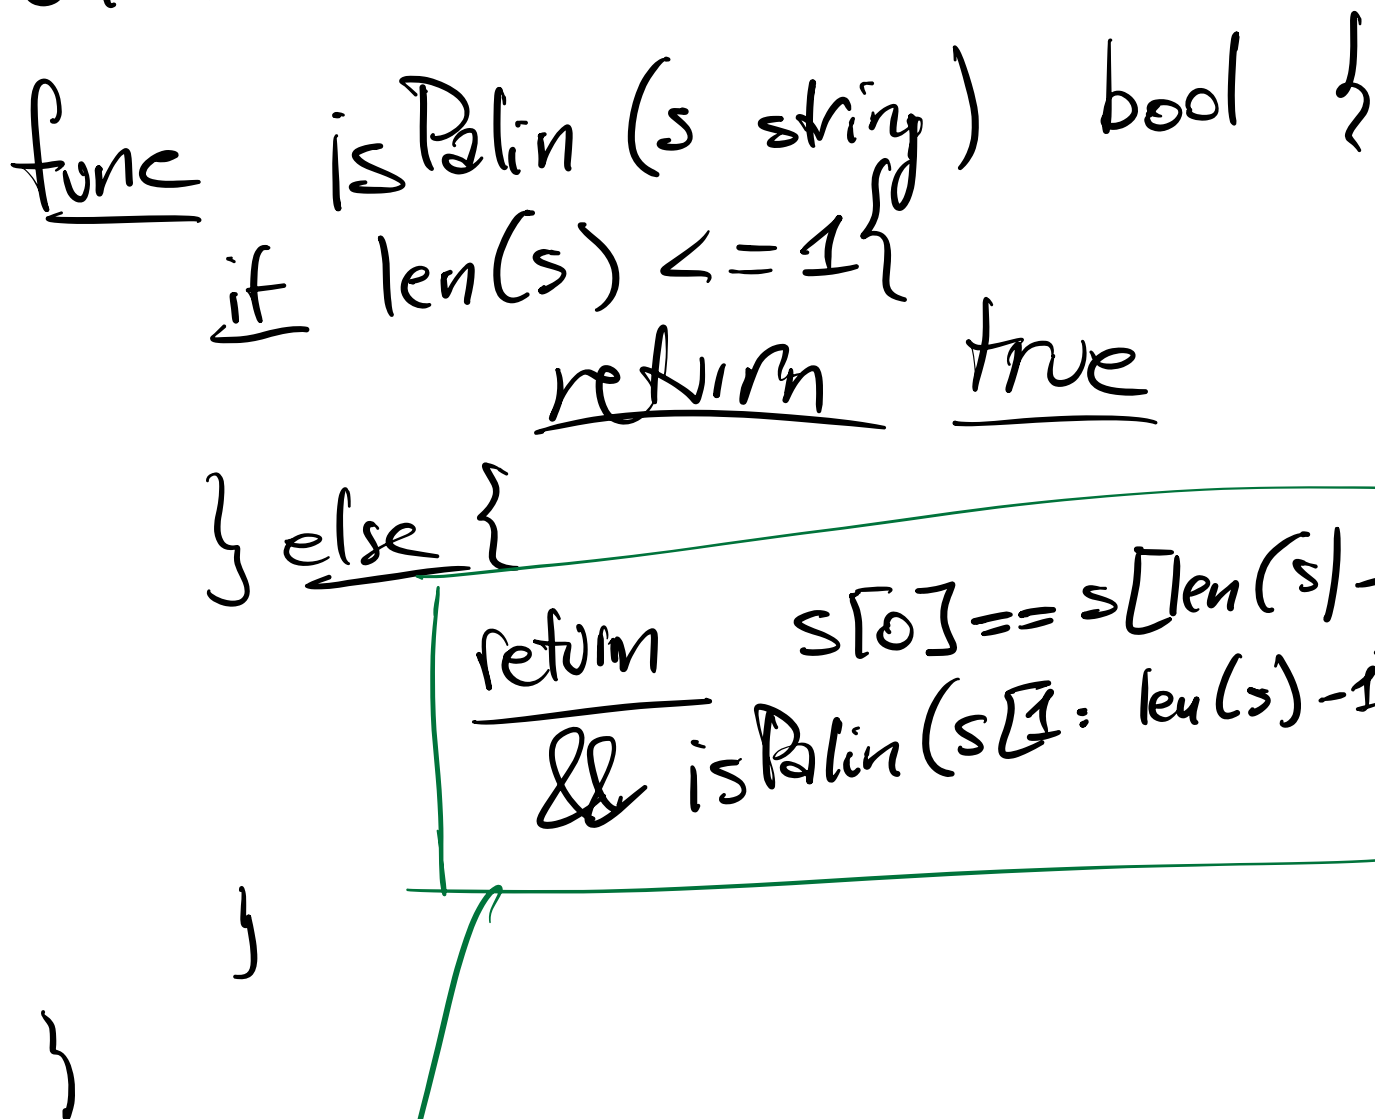 func isPalin (s string) bool {
if len(s) <= 1 {
return true
} else {
return s[0] == s[len(s) -
&& isPalin (s[1: len(s) - 1
}
}